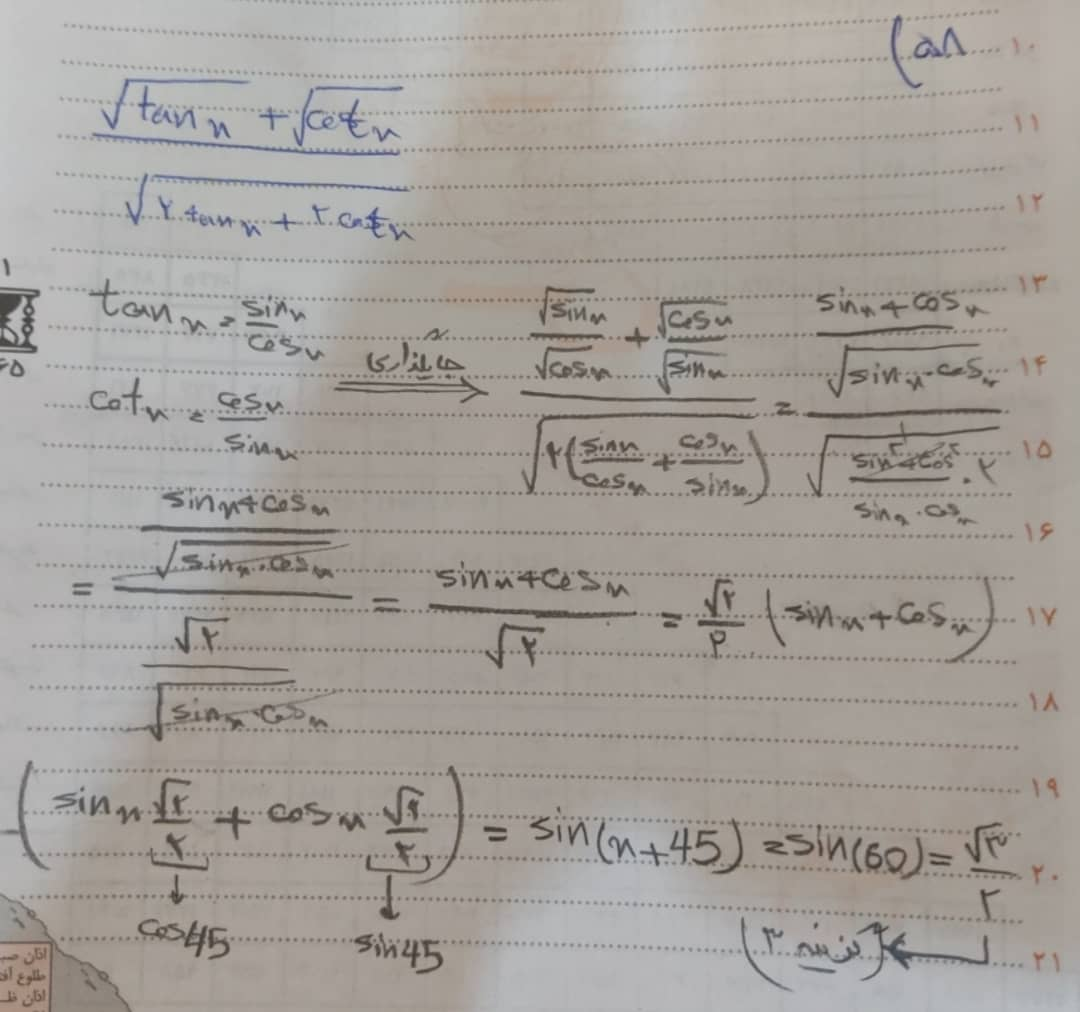 ۵۸)
۱۰
√tan x + √cot x
۱۱
√۲ tan x + ۲ cot x
۱۲
۱۳
tan x = sin x / cos x
cot x = cos x / sin x
جایگذاری ⟹ (√sin x / √cos x + √cos x / √sin x) / √(۲(sin x / cos x + cos x / sin x)) = ((sin x + cos x) / √(sin x · cos x)) / √((sin² + cos²) · ۲ / (sin x · cos x))
۱
۱۴
۱۵
۱۶
= ((sin x + cos x) / √(sin x · cos x)) / (√۲ / √(sin x · cos x)) = (sin x + cos x) / √۲ = √۲/۲ (sin x + cos x)
۱۷
۱۸
۱۹
(sin x √۲/۲ + cos x √۲/۲) = sin(x + 45) = sin(60) = √۳/۲
۲۰
cos45 sin45
(گزینه ۳)
۲۱
اذان
طلوع
اذان